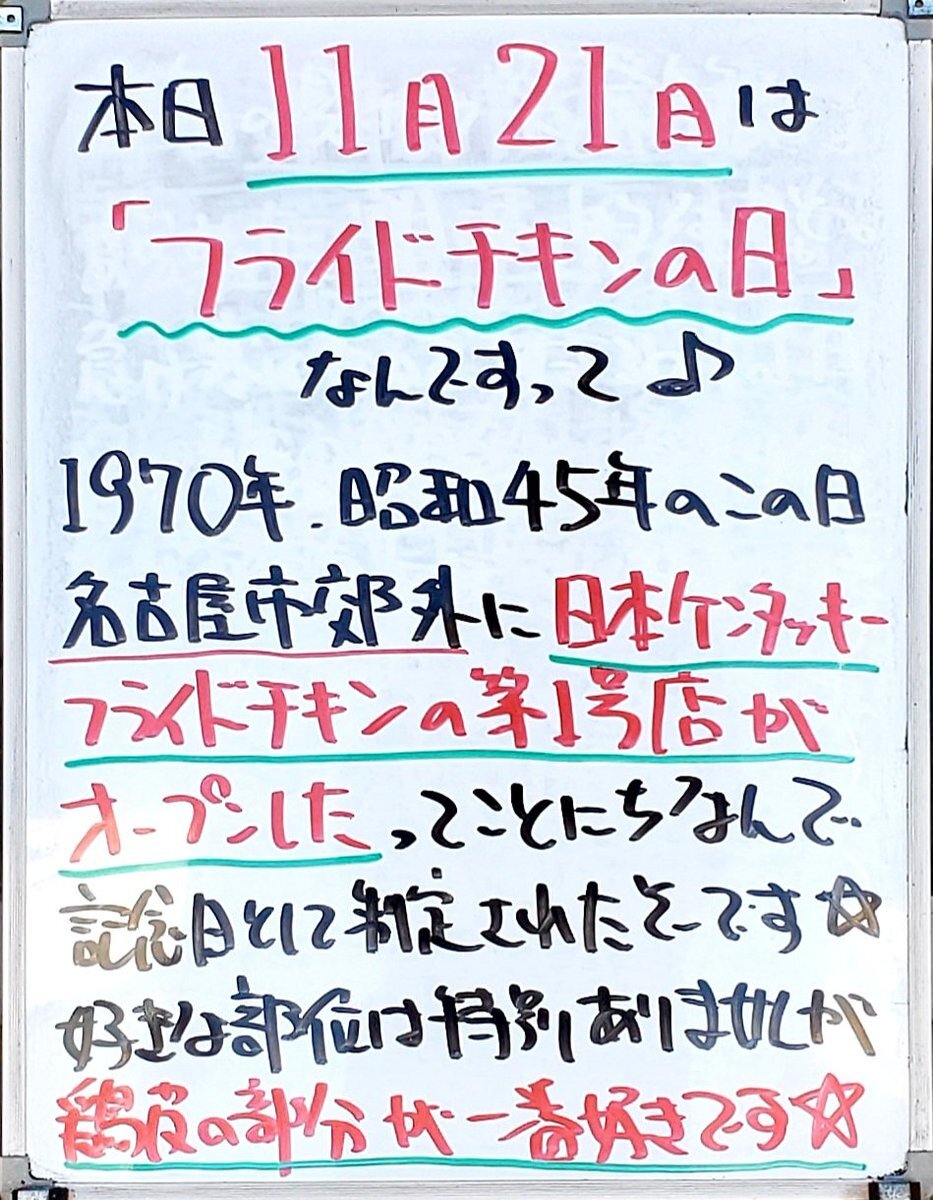 本日11月21日は
「フライドチキンの日」
なんですって♪
1970年.昭和45年のこの日
名古屋市郊外に日本ケンタッキー
フライドチキンの第1号店が
オープンしたってことにちなんで
記念日として制定されたそーです☆
好きな部位は特別ありませんが
鶏皮の部分が一番好きです☆